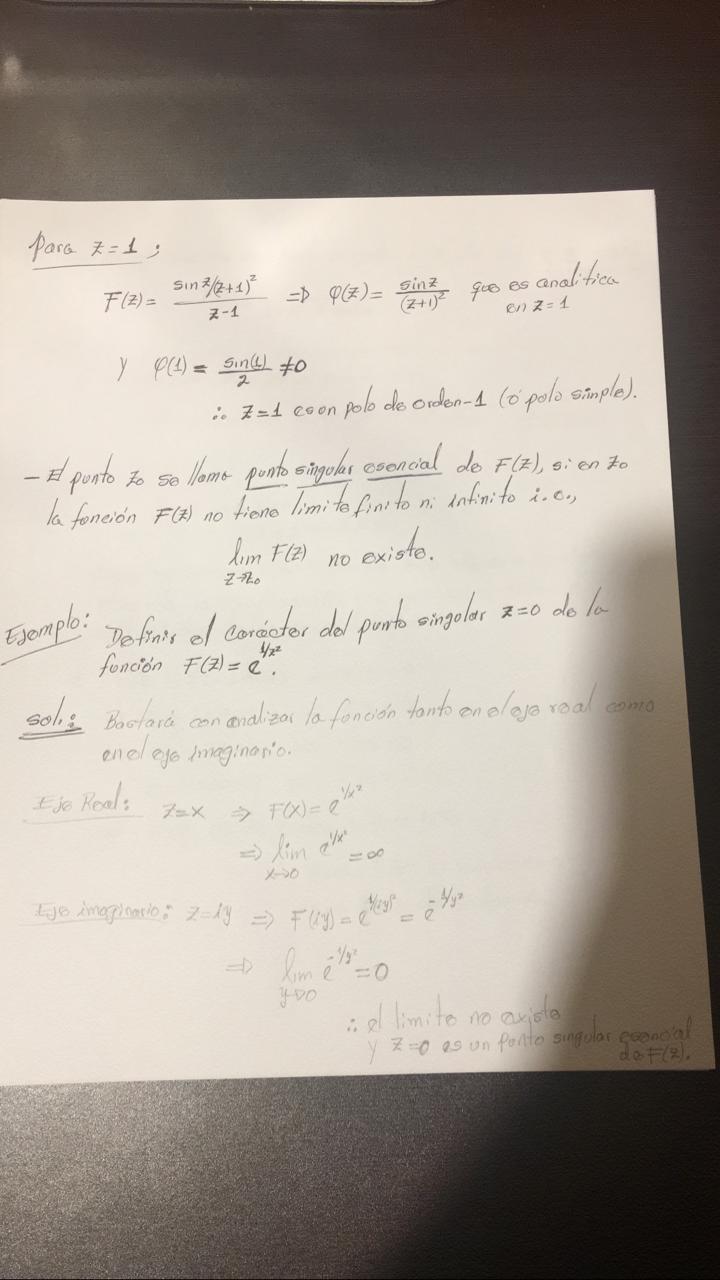 Para z=1;
F(z)= sin z/(z+1)² / z-1 ⇒ φ(z)= sin z / (z+1)² que es analitica en z=1
y φ(1)= sin(1)/2 ≠0
∴ z=1 es un polo de orden-1 (ó polo simple).
- El punto z₀ se llama punto singular esencial de F(z), si en z₀
la función F(z) no tiene limite finito ni infinito i.e.,
lim F(z) no existe.
z→z₀
Ejemplo: Definir el carácter del punto singular z=0 de la
función F(z)= e^{1/z²}.
Sol.: Bastará con analizar la función tanto en el eje real como
en el eje imaginario.
Eje Real: z=x ⇒ F(x)= e^{1/x²}
⇒ lim e^{1/x²} = ∞
x→0
Eje imaginario: z=iy ⇒ F(iy)= e^{1/(iy)²} = e^{-1/y²}
⇒ lim e^{-1/y²} = 0
y→0
∴ el limite no existe
y z=0 es un punto singular esencial
de F(z).